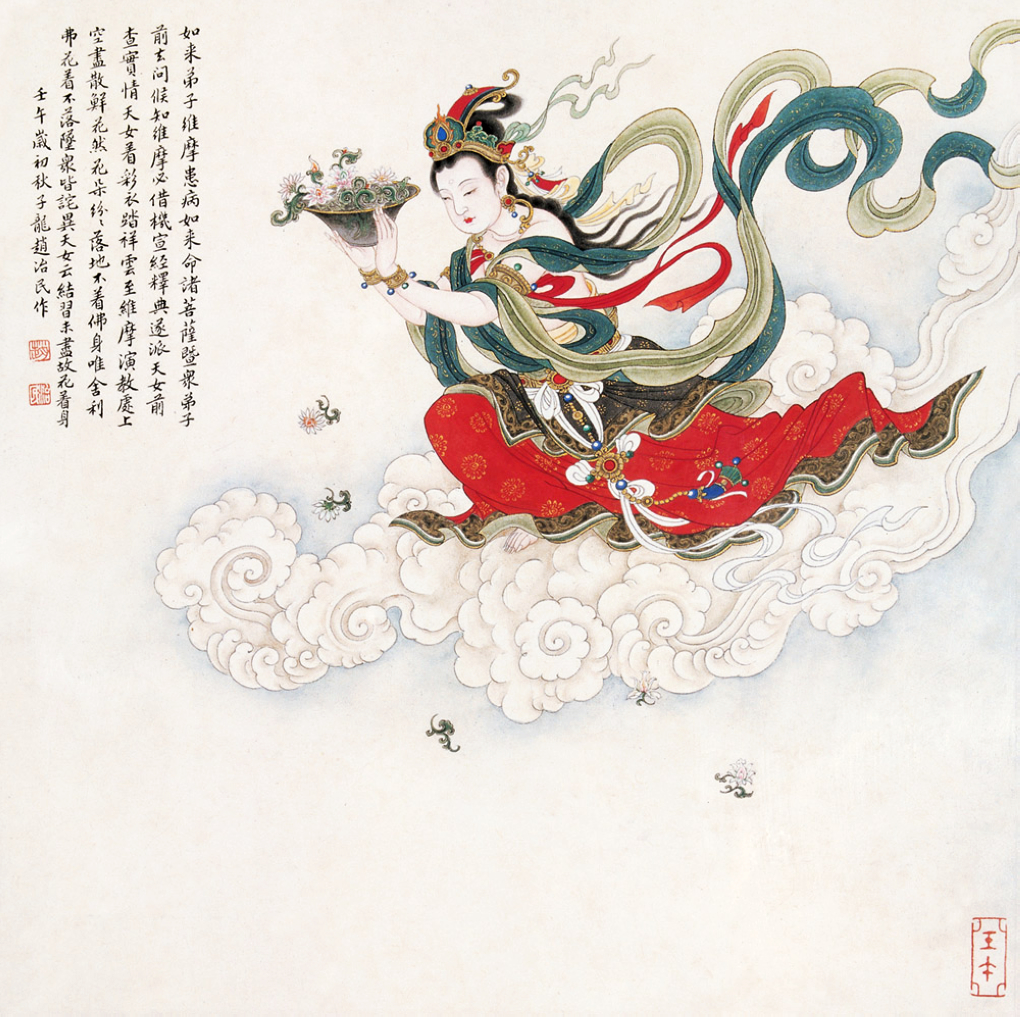 如来弟子維摩患病如来命諸菩薩暨衆弟子
前去问候知維摩必借機宣經釋典遂派天女前
查實情天女着彩衣踏祥雲至維摩演教處上
空盡散鮮花然花朵纷纷落地不着佛身唯舍利
弗花着不落墜衆皆詫異天女云結習未盡故花着身
壬午歲初秋子龍趙治民作